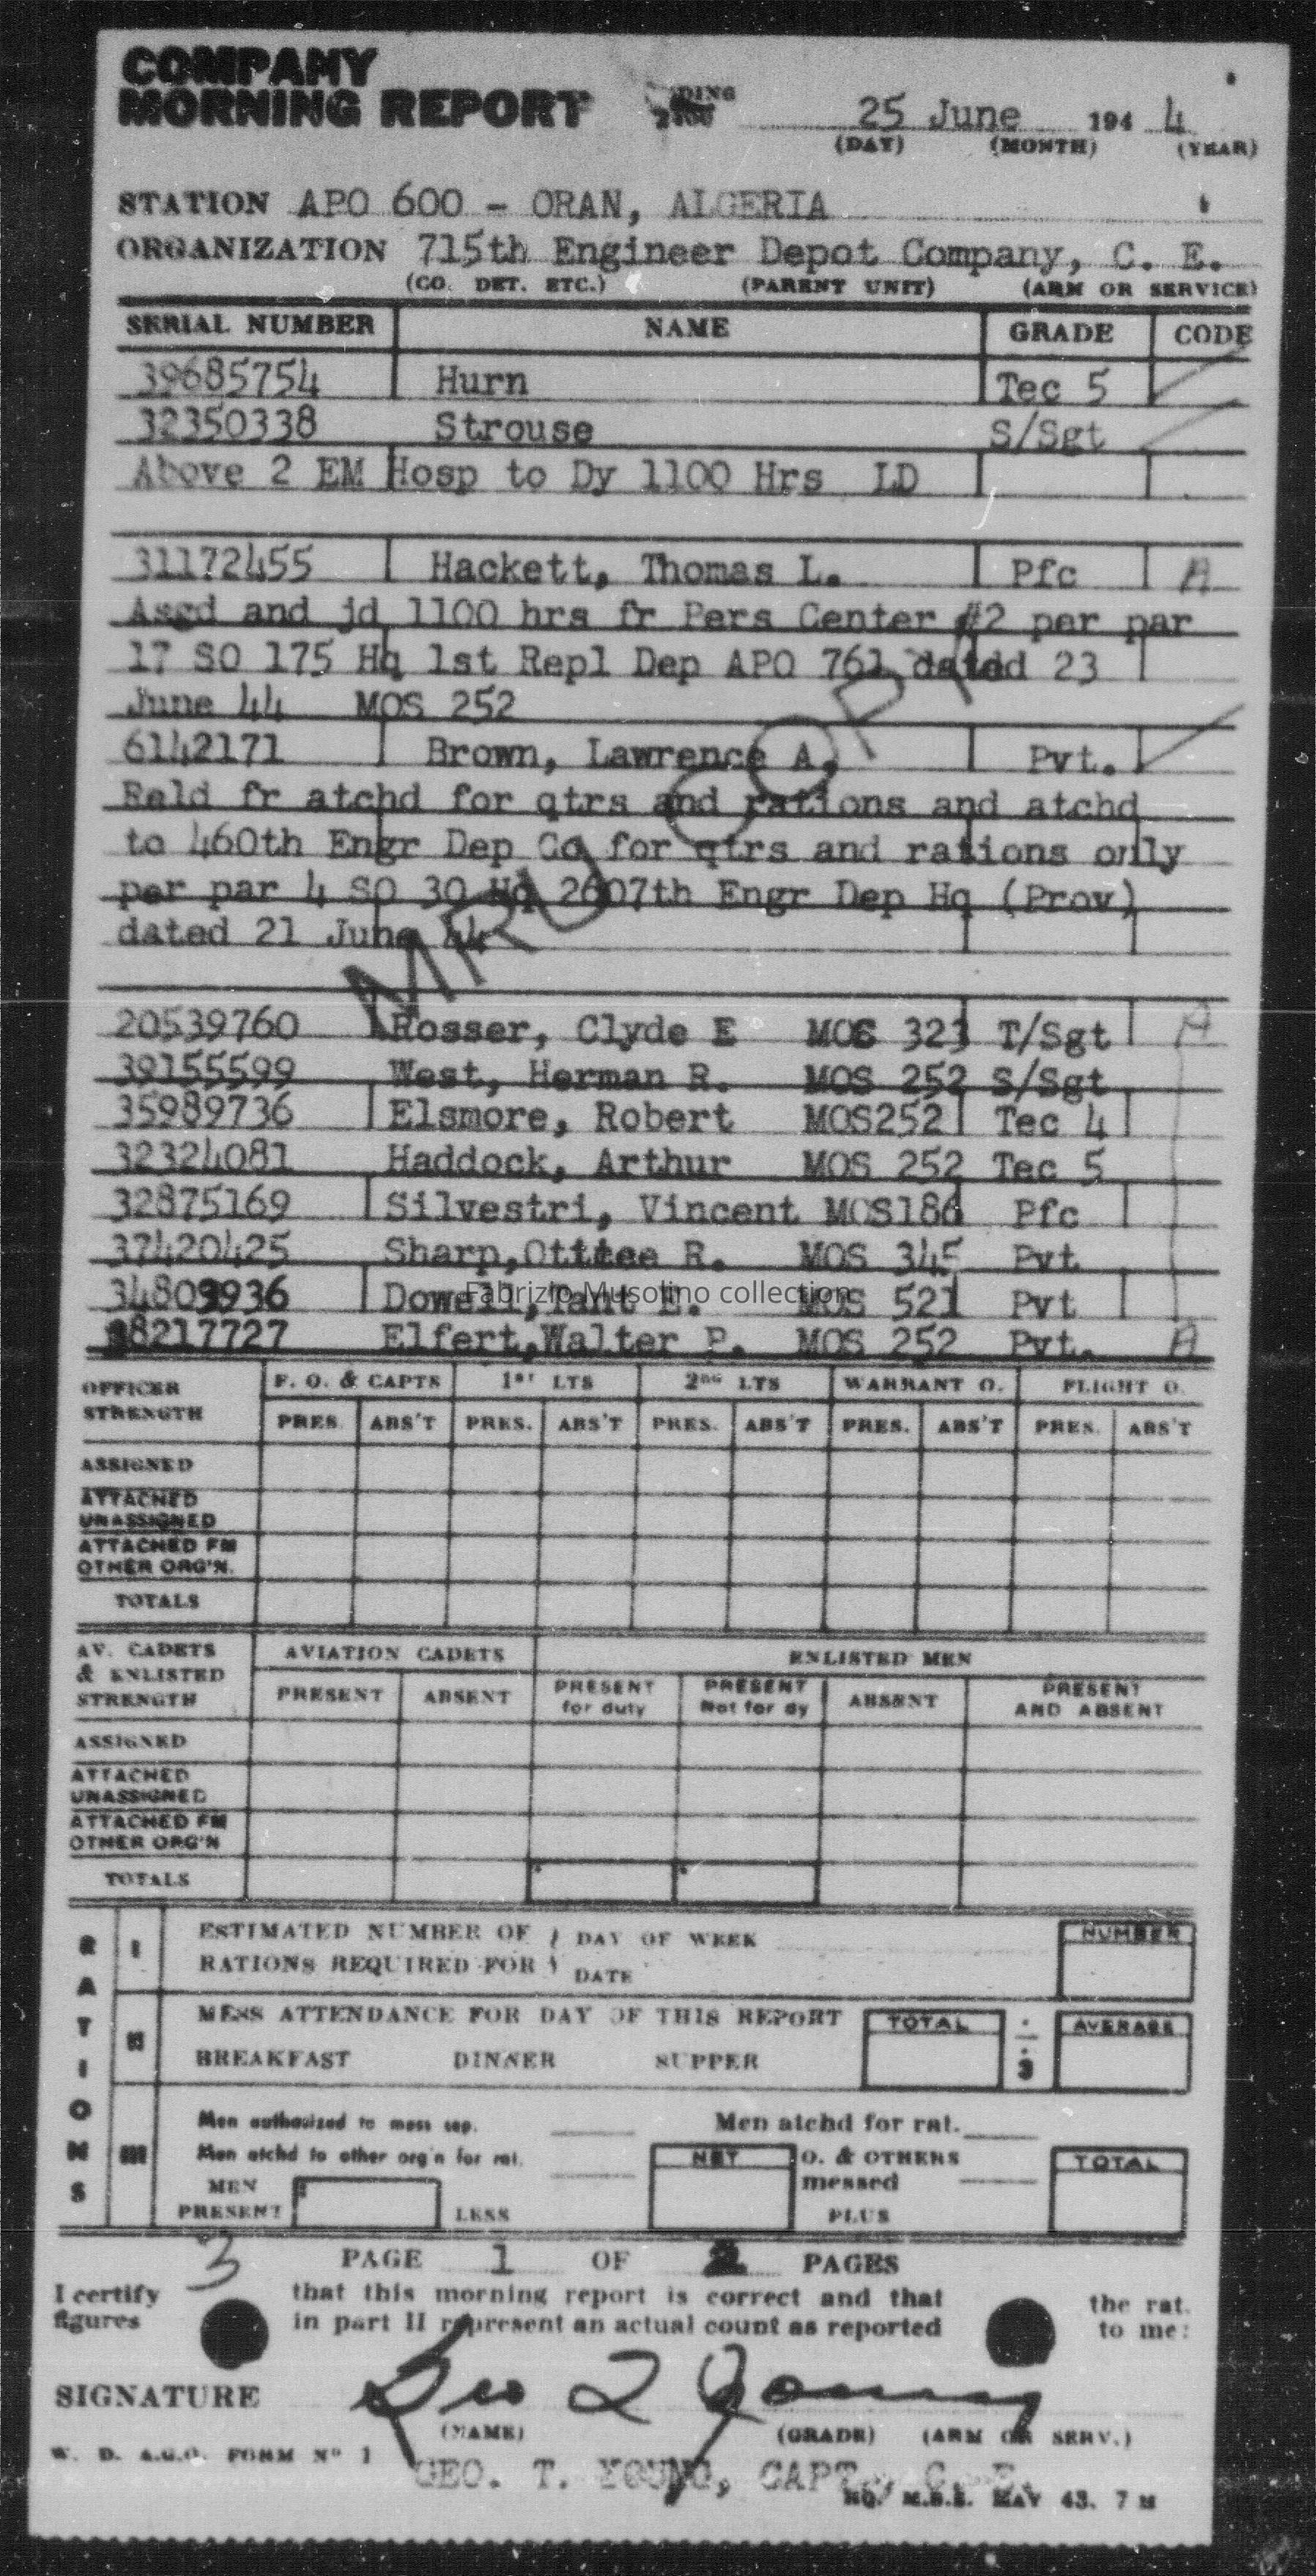 COMPANY
MORNING REPORT ENDING 2400 25 June 194 4
(DAY) (MONTH) (YEAR)
STATION APO 600 - ORAN, ALGERIA
ORGANIZATION 715th Engineer Depot Company, C. E.
(CO. DET. ETC.) (PARENT UNIT) (ARM OR SERVICE)
SERIAL NUMBER NAME GRADE CODE
39685754 Hurn Tec 5
32350338 Strouse S/Sgt
Above 2 EM Hosp to Dy 1100 Hrs LD
31172455 Hackett, Thomas L. Pfc A
Asgd and jd 1100 hrs fr Pers Center #2 per par
17 SO 175 Hq 1st Repl Dep APO 761 dated 23
June 44 MOS 252
6142171 Brown, Lawrence A. Pvt.
Reld fr atchd for qtrs and rations and atchd
to 460th Engr Dep Co for qtrs and rations only
per par 4 SO 30 Hq 2607th Engr Dep Hq (Prov)
dated 21 June 44
MRU COPY
20539760 Rosser, Clyde E MOS 323 T/Sgt A
39155599 West, Herman R. MOS 252 S/Sgt
35989736 Elsmore, Robert MOS252 Tec 4
32324081 Haddock, Arthur MOS 252 Tec 5
32875169 Silvestri, Vincent MOS186 Pfc
37420425 Sharp, R. MOS 345 Pvt
34809936 Dowell, E. MOS 521 Pvt
Fabrizio Musolino collection
38217727 Elfert,Walter P. MOS 252 Pvt. A
OFFICER STRENGTH F. O. & CAPTS 1ST LTS 2ND LTS WARRANT O. FLIGHT O.
PRES. ABS'T PRES. ABS'T PRES. ABS'T PRES. ABS'T PRES. ABS'T
ASSIGNED
ATTACHED
UNASSIGNED
ATTACHED FM
OTHER ORG'N.
TOTALS
AV. CADETS & ENLISTED STRENGTH AVIATION CADETS ENLISTED MEN
PRESENT ABSENT PRESENT for duty PRESENT Not for dy ABSENT PRESENT AND ABSENT
ASSIGNED
ATTACHED
UNASSIGNED
ATTACHED FM
OTHER ORG'N
TOTALS
RATIONS
I ESTIMATED NUMBER OF DAY OF WEEK NUMBER
RATIONS REQUIRED FOR DATE
II MESS ATTENDANCE FOR DAY OF THIS REPORT TOTAL ÷ 3 AVERAGE
BREAKFAST DINNER SUPPER
III Men authorized to mess sep. Men atchd for rat.
Men atchd to other org'n for rat. NET O. & OTHERS messed TOTAL
MEN PRESENT LESS PLUS
3 PAGE 1 OF 2 PAGES
I certify that this morning report is correct and that the rat.
figures in part II represent an actual count as reported to me:
SIGNATURE Geo T Young
(NAME) (GRADE) (ARM OR SERV.)
W. D. A.G.O. FORM No 1 GEO. T. YOUNG, CAPT., C. E.
HQ. M.B.S. MAY 43. 7 M